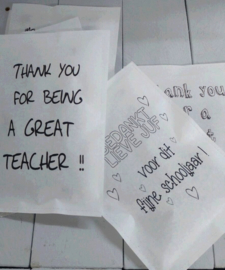 THANK YOU
FOR BEING
A GREAT
TEACHER !!
BEDANKT
LIEVE JUF
voor dit
fijne schooljaar !
ank you
r a